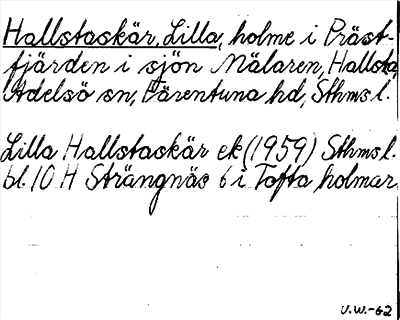 Hallstaskär, Lilla, holme i Präst-
fjärden i sjön Mälaren, Hallsta,
Adelsö sn, Färentuna hd, Sthms l.
Lilla Hallstaskär ek (1959) Sthms l.
bl. 10 H Strängnäs 6 i Tofta holmar
U.W.-62